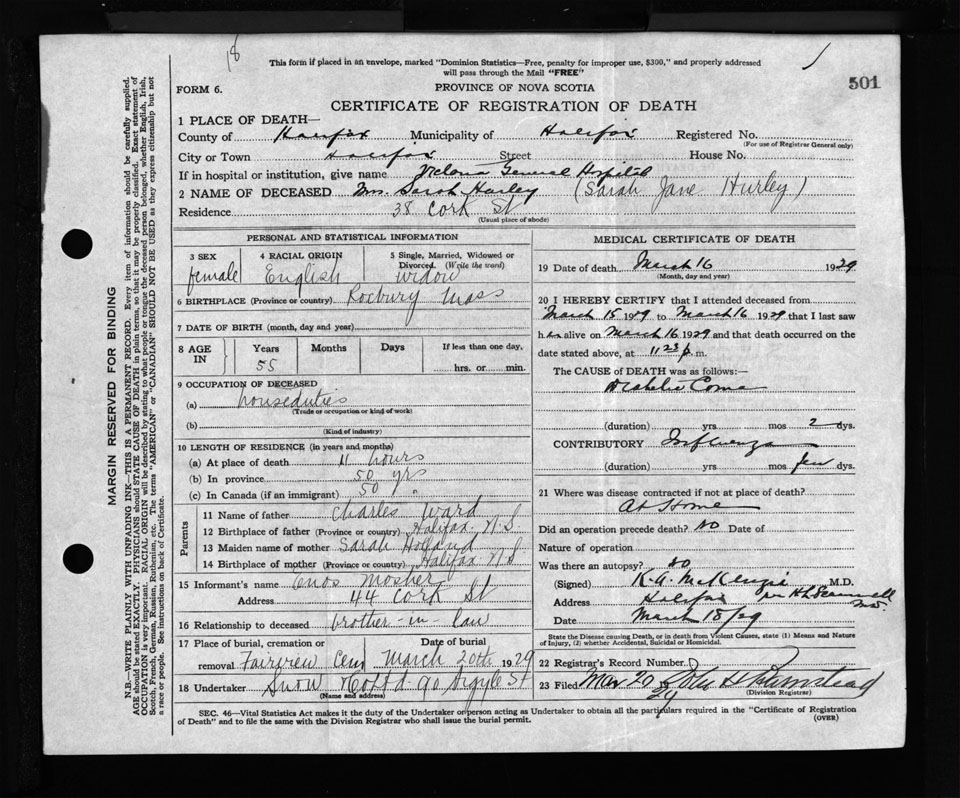 18
This form if placed in an envelope, marked "Dominion Statistics—Free, penalty for improper use, $300," and properly addressed
will pass through the Mail "FREE"
501
FORM 6.
PROVINCE OF NOVA SCOTIA
CERTIFICATE OF REGISTRATION OF DEATH
1 PLACE OF DEATH—
County of Halifax Municipality of Halifax Registered No.
(For use of Registrar General only)
City or Town Halifax Street House No.
If in hospital or institution, give name Victoria General Hospital
2 NAME OF DECEASED Mrs. Sarah Harley (Sarah Jane Hurley)
Residence 38 Cork St
(Usual place of abode)
PERSONAL AND STATISTICAL INFORMATION
3 SEX 4 RACIAL ORIGIN 5 Single, Married, Widowed or
Divorced. (Write the word)
female English widow
6 BIRTHPLACE (Province or country) Roxbury Mass
7 DATE OF BIRTH (month, day and year)
8 AGE IN Years Months Days If less than one day,
55 hrs. or min.
9 OCCUPATION OF DECEASED
(a) houseduties
(Trade or occupation or kind of work)
(b)
(Kind of industry)
10 LENGTH OF RESIDENCE (in years and months)
(a) At place of death 11 hours
(b) In province 50 yrs
(c) In Canada (if an immigrant) 50 "
Parents
11 Name of father Charles Ward
12 Birthplace of father (Province or country) Halifax N.S.
13 Maiden name of mother Sarah Holland
14 Birthplace of mother (Province or country) Halifax N S
15 Informant's name Enos Mosher
Address 44 Cork St
16 Relationship to deceased brother-in-law
17 Place of burial, cremation or Date of burial
removal Fairview Cem March 20th 1929
18 Undertaker Snow 90 Argyle St
(Name and address)
MEDICAL CERTIFICATE OF DEATH
19 Date of death March 16 1929
(Month, day and year)
20 I HEREBY CERTIFY that I attended deceased from
March 15 1929 to March 16 1929 that I last saw
her alive on March 16 1929 and that death occurred on the
date stated above, at 11.23 p.m.
The CAUSE of DEATH was as follows:—
Diabetic Coma
(duration) yrs mos 2 dys.
CONTRIBUTORY Influenza
(duration) yrs mos few dys.
21 Where was disease contracted if not at place of death?
At Home
Did an operation precede death? No Date of
Nature of operation
Was there an autopsy? no
(Signed) K.A. McKenzie M.D.
Address Halifax
Date March 18/29
State the Disease causing Death, or in death from Violent Causes, state (1) Means and Nature
of Injury, (2) whether Accidental, Suicidal or Homicidal.
22 Registrar's Record Number
23 Filed Mar 20
(Division Registrar)
SEC. 46—Vital Statistics Act makes it the duty of the Undertaker or person acting as Undertaker to obtain all the particulars required in the "Certificate of Registration
of Death" and to file the same with the Division Registrar who shall issue the burial permit.
(OVER)
MARGIN RESERVED FOR BINDING
N.B.—WRITE PLAINLY WITH UNFADING INK—THIS IS A PERMANENT RECORD. Every item of information should be carefully supplied.
AGE should be stated EXACTLY. PHYSICIANS should STATE CAUSE OF DEATH in plain terms, so that it may be properly classified. Exact statement of
OCCUPATION is very important. RACIAL ORIGIN will be described by stating to what people or tongue the deceased person belonged, whether English, Irish,
Scotch, French, German, Russian, Ruthenian, etc. The terms "AMERICAN" or "CANADIAN" SHOULD NOT BE USED as they express citizenship but not
a race or people. See instructions on back of Certificate.